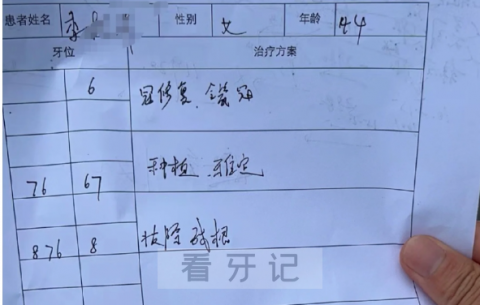 患者姓名 李 性别 女 年龄 44
牙位 治疗方案
6 冠修复、全瓷冠
76 67 种植、
876 8 拔除残根
看牙记